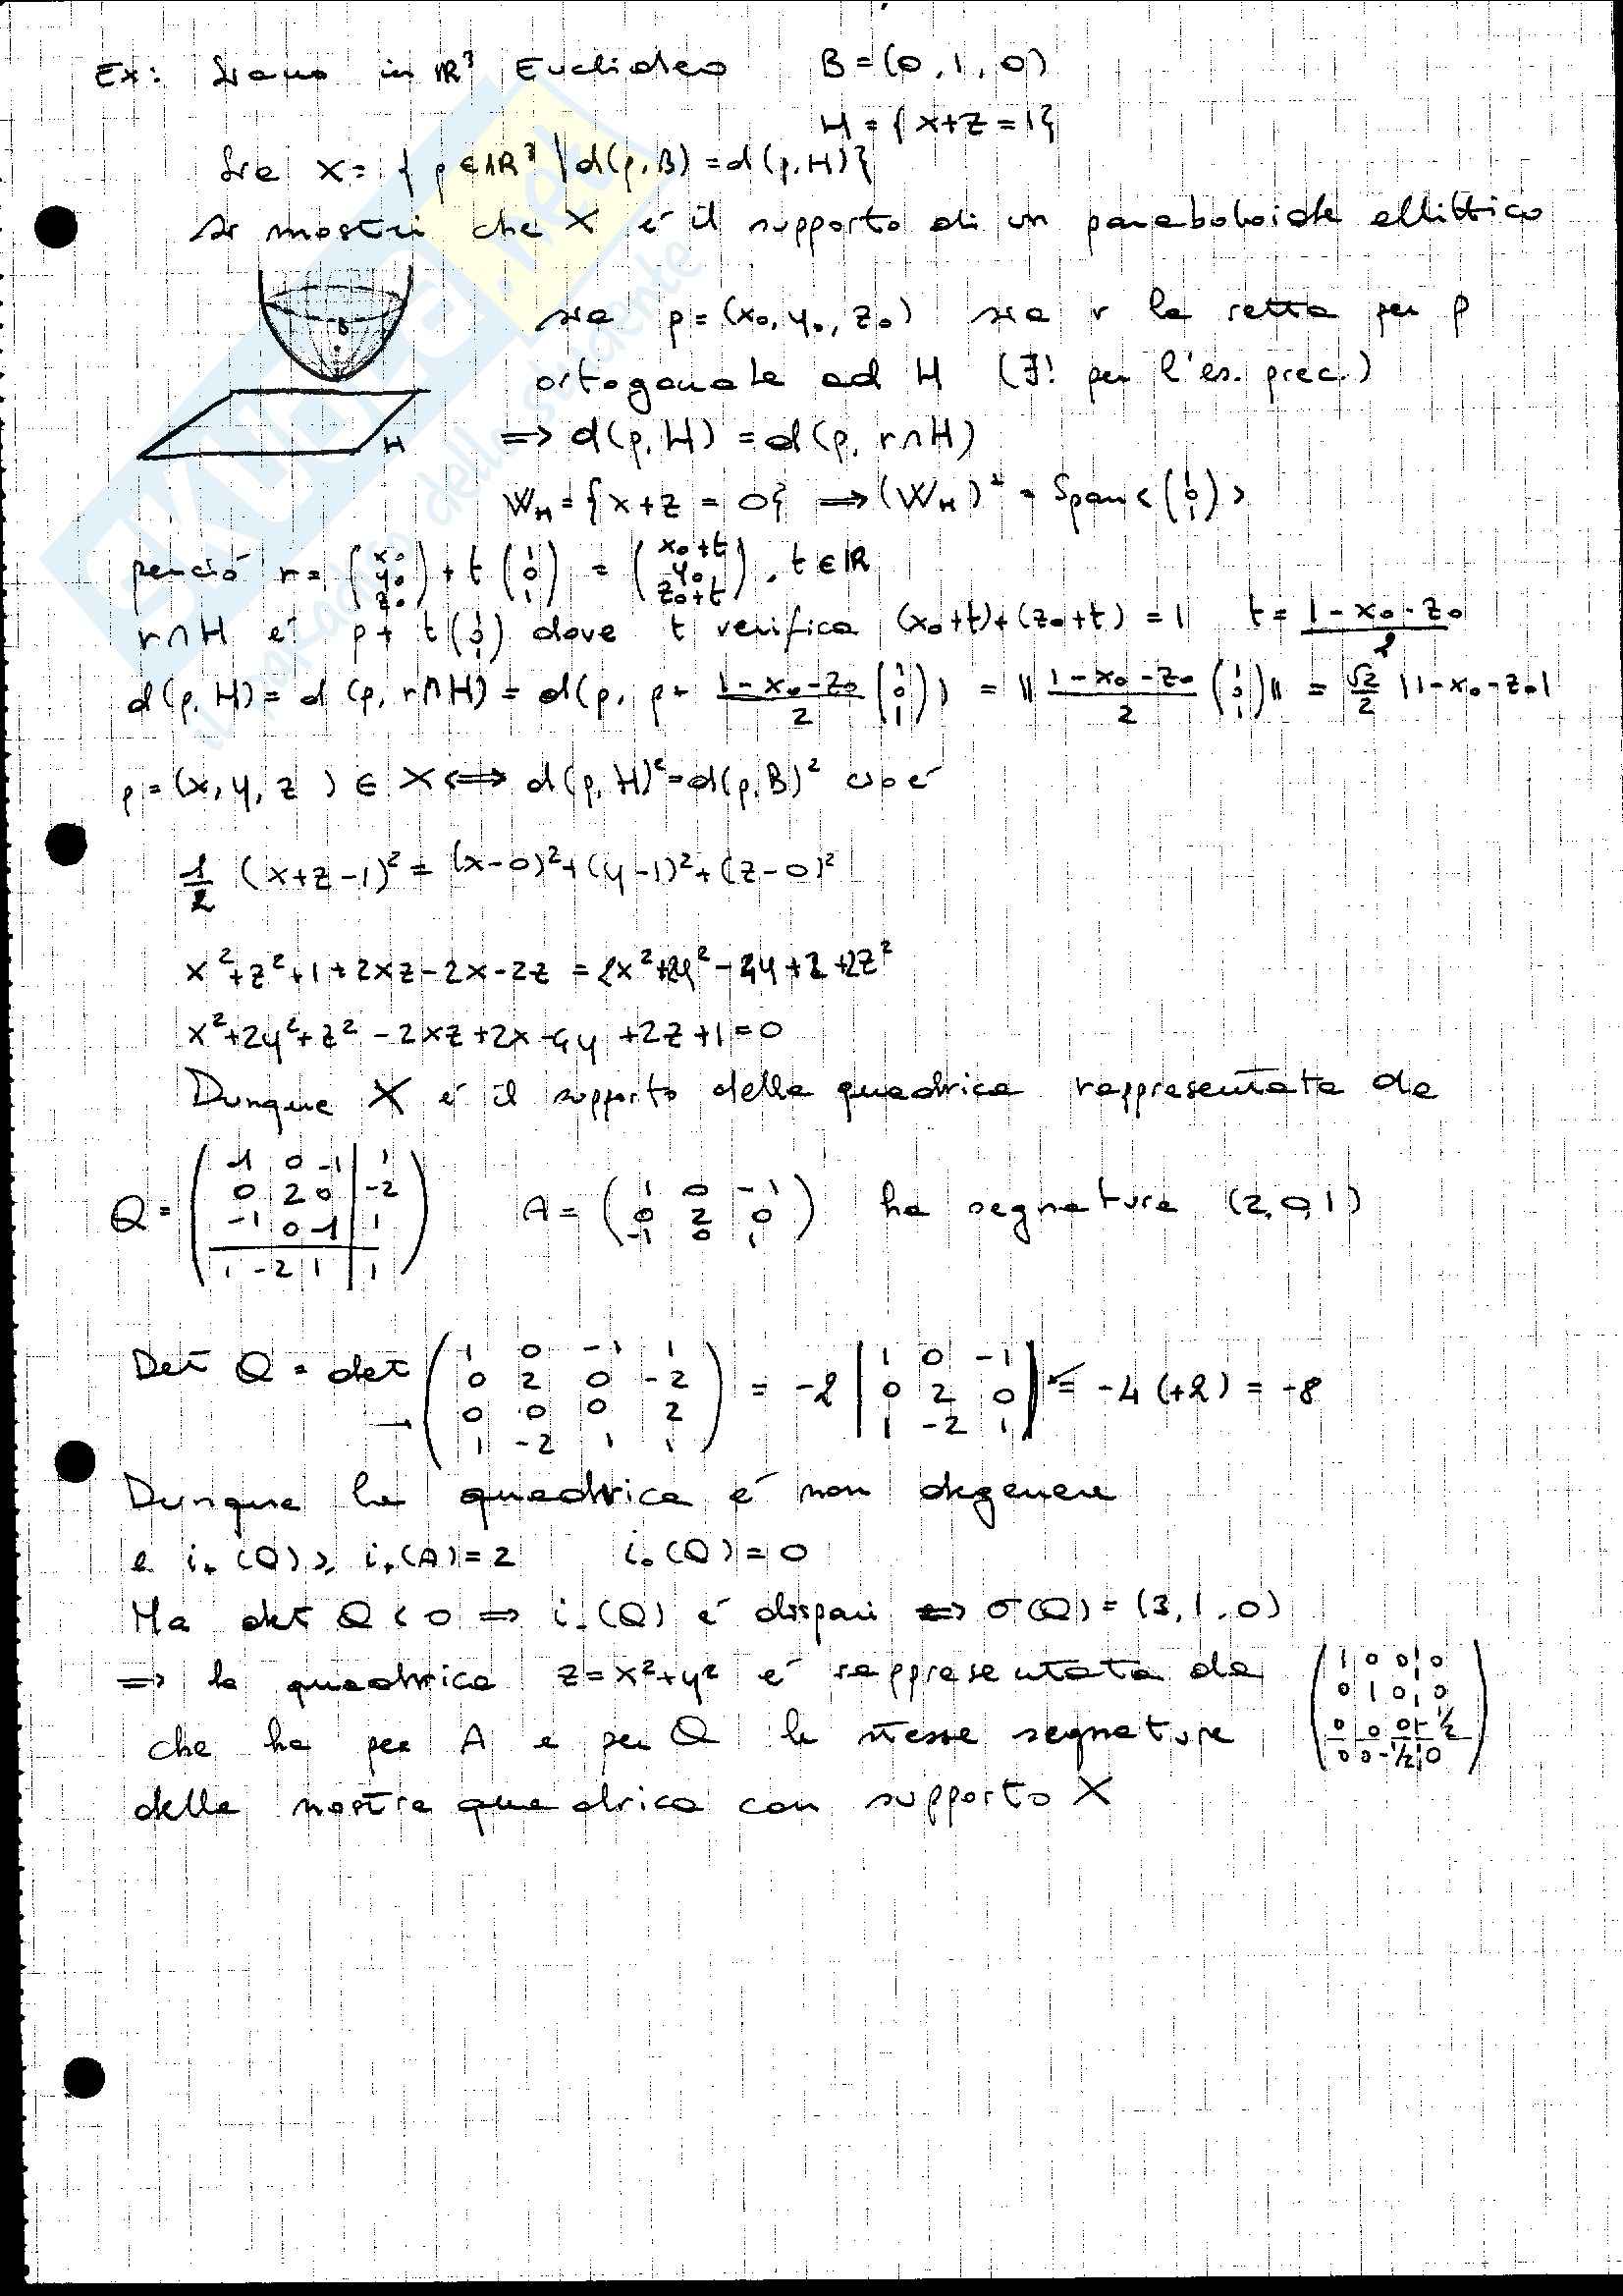 Ex: Siano in ℝ³ Euclideo B=(0,1,0)
H={x+z=1}
Sia X={p∈ℝ³ | d(p,B)=d(p,H)}
Si mostri che X é il supporto di un paraboloide ellittico
B
H
sia p=(x₀,y₀,z₀) sia r la retta per p
ortogonale ad H (∃! per l'es. prec.)
⟹ d(p,H)=d(p,r∩H)
W_H={x+z=0} ⟹ (W_H)^⊥ = Span<(1 0 1)>
perció r=(x₀ y₀ z₀)+t(1 0 1)=(x₀+t y₀ z₀+t), t∈ℝ
r∩H é p+t(1 0 1) dove t verifica (x₀+t)+(z₀+t)=1 t=(1-x₀-z₀)/2
d(p,H)=d(p,r∩H)=d(p, p+ (1-x₀-z₀)/2 (1 0 1)) = ‖(1-x₀-z₀)/2 (1 0 1)‖ = √2/2 |1-x₀-z₀|
p=(x,y,z)∈X ⟺ d(p,H)²=d(p,B)² cioé
1/2 (x+z-1)²=(x-0)²+(y-1)²+(z-0)²
x²+z²+1+2xz-2x-2z=2x²+2y²-4y+2+2z²
x²+2y²+z²-2xz+2x-4y+2z+1=0
Dunque X é il supporto della quadrica rappresentata da
Q=(1 0 -1 | 1
0 2 0 | -2
-1 0 1 | 1
1 -2 1 | 1)
A=(1 0 -1
0 2 0
-1 0 1) ha segnatura (2,0,1)
Det Q = det (1 0 -1 1
0 2 0 -2
→ 0 0 0 2
1 -2 1 1) = -2 |1 0 -1
0 2 0
1 -2 1| = -4(+2) = -8
Dunque la quadrica é non degenere
e i₊(Q)≥i₊(A)=2 i₀(Q)=0
Ma det Q<0 ⟹ i₋(Q) é dispari ⟺ σ(Q)=(3,1,0)
⟹ la quadrica z=x²+y² é rappresentata da
(1 0 0 | 0
0 1 0 | 0
0 0 0 | -1/2
0 0 -1/2 | 0)
che ha per A e per Q la stessa segnatura
della nostra quadrica con supporto X